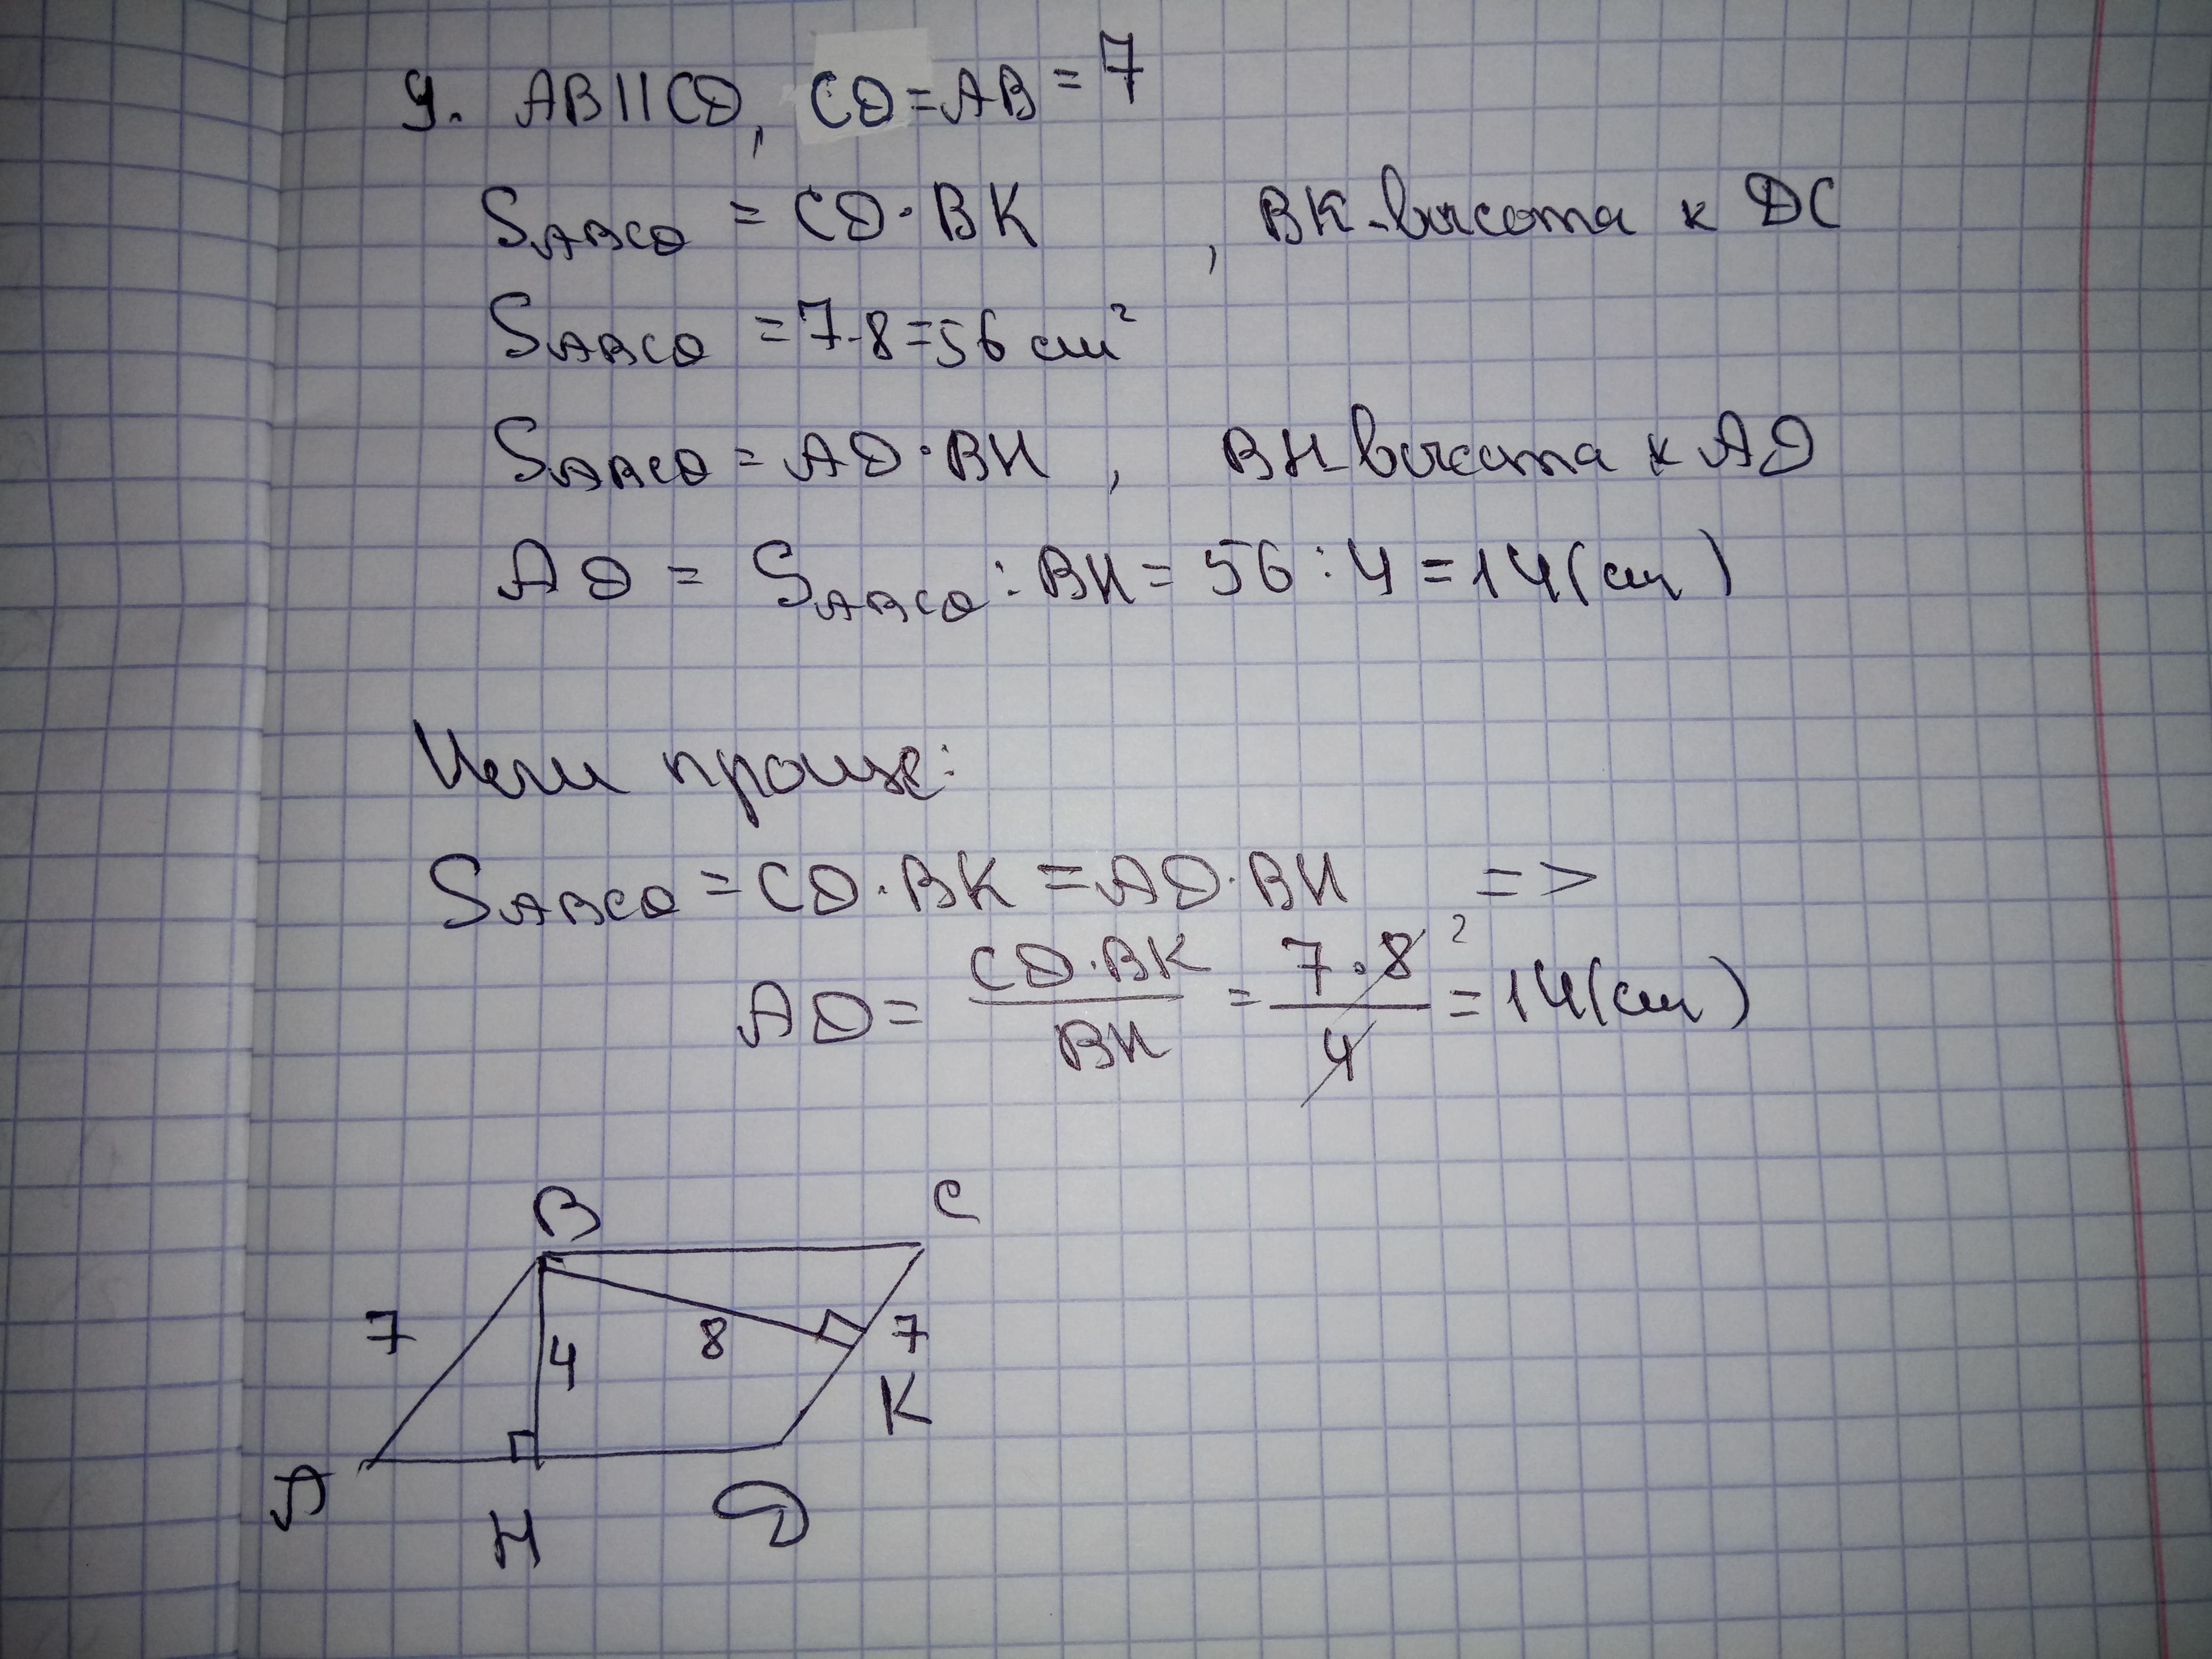 9. AB||CD, CD=AB=7
SABCD = CD·BK , BK-высота к DC
SABCD =7·8=56 см²
SABCD = AD·BH , BH-высота к AD
AD = SABCD : BH = 56 : 4 = 14(см)
Или проще:
SABCD = CD·BK = AD·BH =>
AD = CD·BK / BH = 7·8 2 / 4 = 14(см)
B C
7 4 8 7
K
A H D